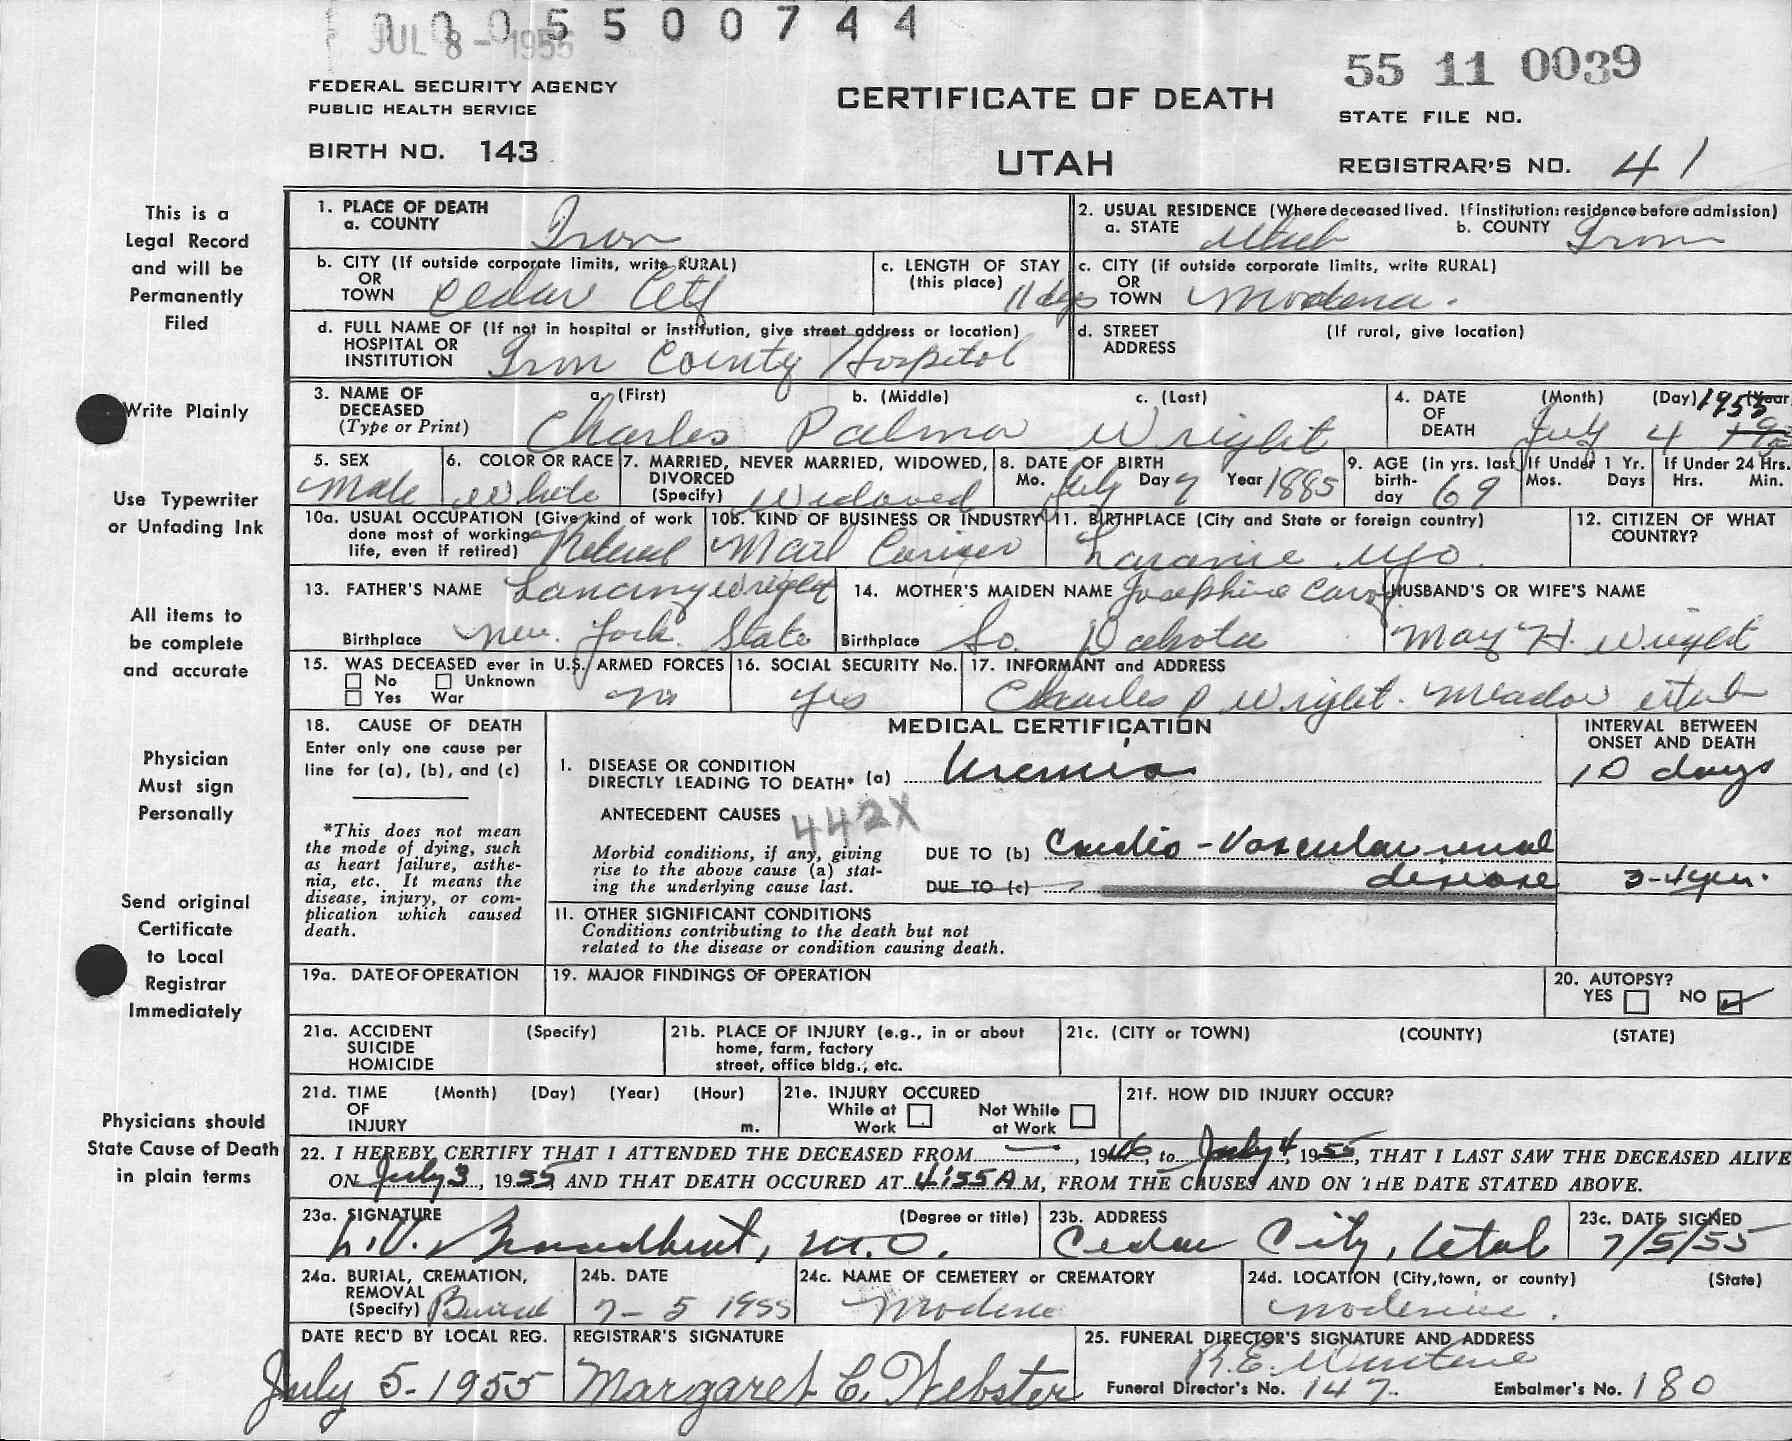 0005500744
JUL 8 - 1955
55 11 0039
FEDERAL SECURITY AGENCY
PUBLIC HEALTH SERVICE
CERTIFICATE OF DEATH
STATE FILE NO.
BIRTH NO. 143
UTAH
REGISTRAR'S NO. 41
This is a
Legal Record
and will be
Permanently
Filed
Write Plainly
Use Typewriter
or Unfading Ink
All items to
be complete
and accurate
Physician
Must sign
Personally
Send original
Certificate
to Local
Registrar
Immediately
Physicians should
State Cause of Death
in plain terms
1. PLACE OF DEATH
a. COUNTY Iron
2. USUAL RESIDENCE (Where deceased lived. If institution: residence before admission)
a. STATE Utah b. COUNTY Iron
b. CITY (If outside corporate limits, write RURAL)
OR
TOWN Cedar City
c. LENGTH OF STAY
(this place) 11 days
c. CITY (if outside corporate limits, write RURAL)
OR
TOWN Modena.
d. FULL NAME OF (If not in hospital or institution, give street address or location)
HOSPITAL OR
INSTITUTION Iron County Hospital
d. STREET (If rural, give location)
ADDRESS
3. NAME OF a. (First) b. (Middle) c. (Last)
DECEASED
(Type or Print) Charles Palmer Wright
4. DATE (Month) (Day) (Year)
OF
DEATH July 4 1955
5. SEX
Male
6. COLOR OR RACE
White
7. MARRIED, NEVER MARRIED, WIDOWED,
DIVORCED
(Specify) Widowed
8. DATE OF BIRTH
Mo. July Day 7 Year 1885
9. AGE (in yrs. last
birth-
day 69
If Under 1 Yr.
Mos. Days
If Under 24 Hrs.
Hrs. Min.
10a. USUAL OCCUPATION (Give kind of work
done most of working
life, even if retired) Retired
10b. KIND OF BUSINESS OR INDUSTRY
Mail Carrier
11. BIRTHPLACE (City and State or foreign country)
Laramie Wyo.
12. CITIZEN OF WHAT
COUNTRY?
13. FATHER'S NAME Wright
Birthplace New York State
14. MOTHER'S MAIDEN NAME Josephine
Birthplace So. Dakota
HUSBAND'S OR WIFE'S NAME
May H. Wright
15. WAS DECEASED ever in U.S. ARMED FORCES
No Unknown
Yes War no
16. SOCIAL SECURITY No.
yes
17. INFORMANT and ADDRESS
Charles P Wright. Meadow Utah
18. CAUSE OF DEATH
Enter only one cause per
line for (a), (b), and (c)
*This does not mean
the mode of dying, such
as heart failure, asthe-
nia, etc. It means the
disease, injury, or com-
plication which caused
death.
MEDICAL CERTIFICATION
I. DISEASE OR CONDITION
DIRECTLY LEADING TO DEATH* (a) Uremia
ANTECEDENT CAUSES 442X
Morbid conditions, if any, giving
rise to the above cause (a) stat-
ing the underlying cause last.
DUE TO (b) Cardio-Vascular renal
DUE TO (c) disease
INTERVAL BETWEEN
ONSET AND DEATH
10 days
3-4 yrs.
II. OTHER SIGNIFICANT CONDITIONS
Conditions contributing to the death but not
related to the disease or condition causing death.
19a. DATE OF OPERATION
19. MAJOR FINDINGS OF OPERATION
20. AUTOPSY?
YES NO
21a. ACCIDENT (Specify)
SUICIDE
HOMICIDE
21b. PLACE OF INJURY (e.g., in or about
home, farm, factory
street, office bldg., etc.
21c. (CITY or TOWN) (COUNTY) (STATE)
21d. TIME (Month) (Day) (Year) (Hour)
OF
INJURY m.
21e. INJURY OCCURED
While at Work Not While at Work
21f. HOW DID INJURY OCCUR?
22. I HEREBY CERTIFY THAT I ATTENDED THE DECEASED FROM ——, 1946, to July 4, 1955, THAT I LAST SAW THE DECEASED ALIVE
ON July 3, 1955, AND THAT DEATH OCCURED AT 4:55 A M, FROM THE CAUSES AND ON THE DATE STATED ABOVE.
23a. SIGNATURE (Degree or title)
L.V. Broadbent, M.D.
23b. ADDRESS
Cedar City, Utah
23c. DATE SIGNED
7/5/55
24a. BURIAL, CREMATION,
REMOVAL
(Specify) Burial
24b. DATE
7-5 1955
24c. NAME OF CEMETERY or CREMATORY
Modena
24d. LOCATION (City, town, or county) (State)
DATE REC'D BY LOCAL REG.
July 5-1955
REGISTRAR'S SIGNATURE
Margaret C. Webster
25. FUNERAL DIRECTOR'S SIGNATURE AND ADDRESS
R.E.
Funeral Director's No. 147. Embalmer's No. 180